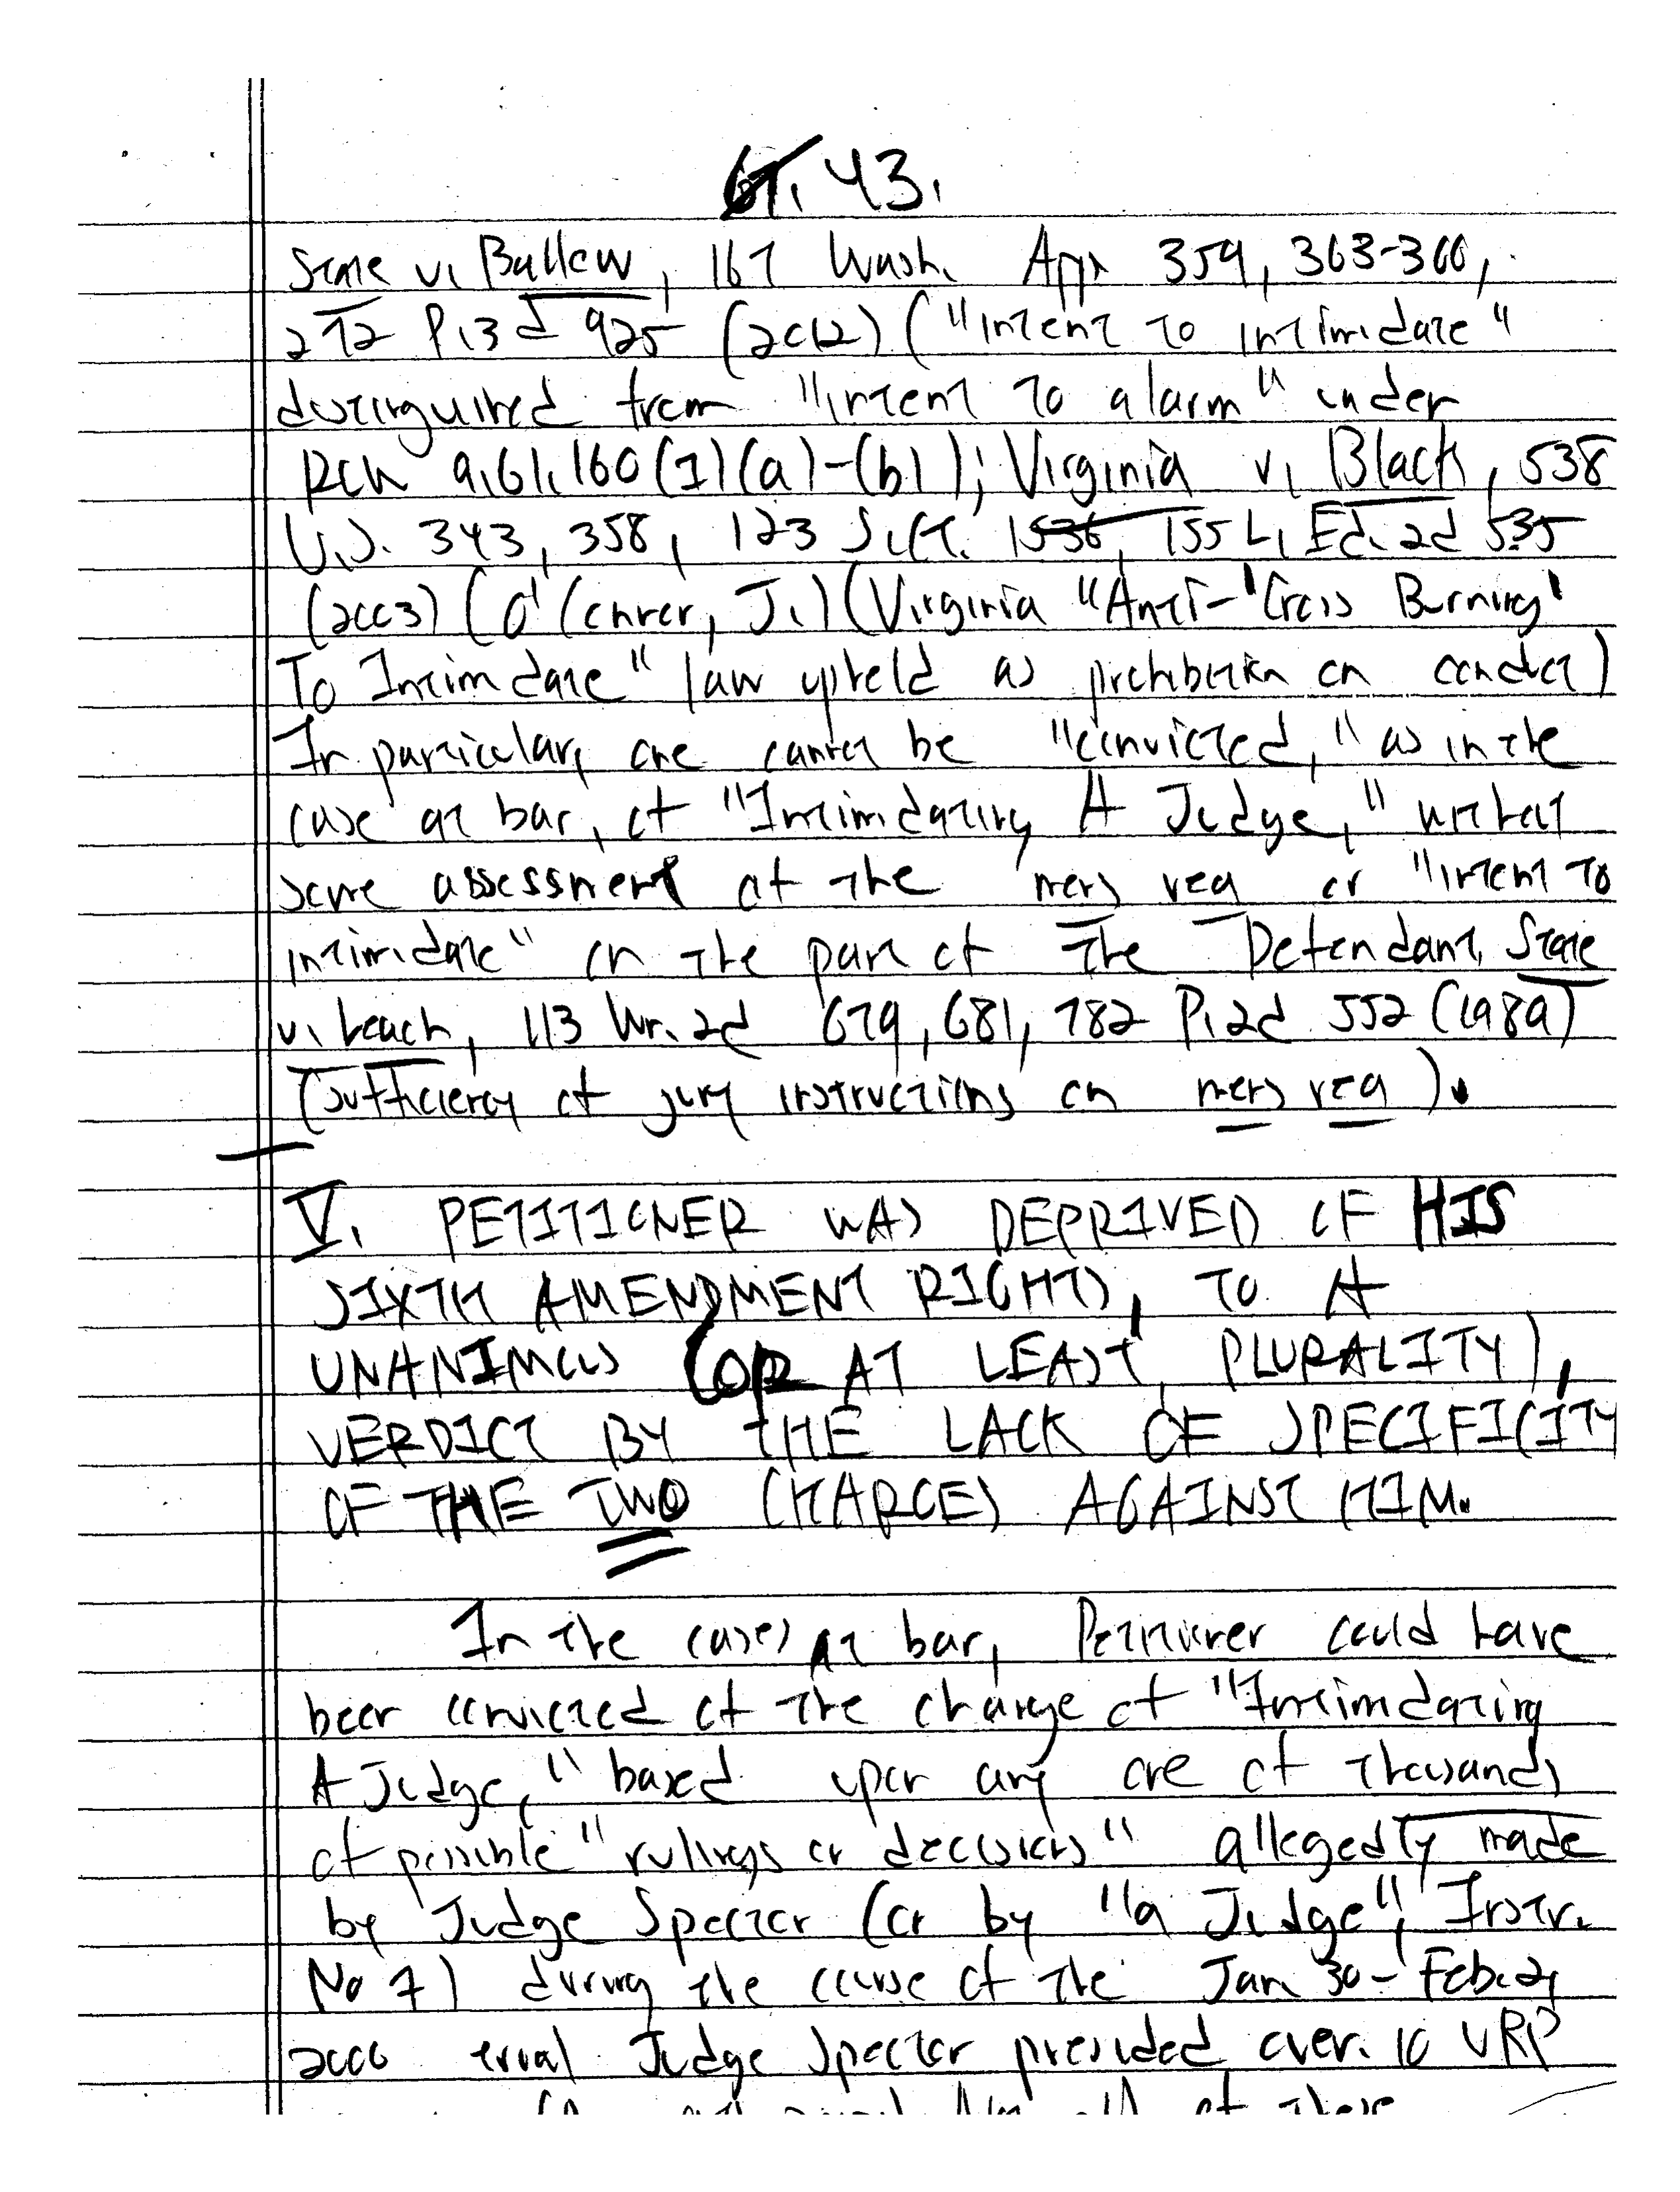 43.
State v. Ballew, 167 Wash. App. 359, 363-366,
272 P.3d 925 (2012) ("intent to intimidate"
distinguished from "intent to alarm" under
RCW 9.61.160(1)(a)-(b)); Virginia v. Black, 538
U.S. 343, 358, 123 S.Ct. 1536, 155 L.Ed.2d 535
(2003) (O'Connor, J.) (Virginia "Anti-'Cross Burning'
To Intimidate" law upheld as prohibition on conduct)
In particular, one cannot be "convicted," as in the
case at bar, of "Intimidating A Judge," without
some assessment of the mens rea or "intent to
intimidate" on the part of the Defendant. State
v. Leach, 113 Wn.2d 679, 681, 782 P.2d 552 (1989)
(sufficiency of jury instructions on mens rea).
V. PETITIONER WAS DEPRIVED OF HIS
SIXTH AMENDMENT RIGHTS, TO A
UNANIMOUS (OR AT LEAST, PLURALITY),
VERDICT BY THE LACK OF SPECIFICITY
OF THE TWO CHARGES AGAINST HIM.
In the cases at bar, Petitioner could have
been convicted of the charge of "Intimidating
A Judge," based upon any one of thousands
of possible "rulings or decisions" allegedly made
by Judge Spector (or by "a Judge", Instr.
No 7) during the course of the Jan 30-Feb. 2,
2006 trial Judge Spector presided over. 10 VRP